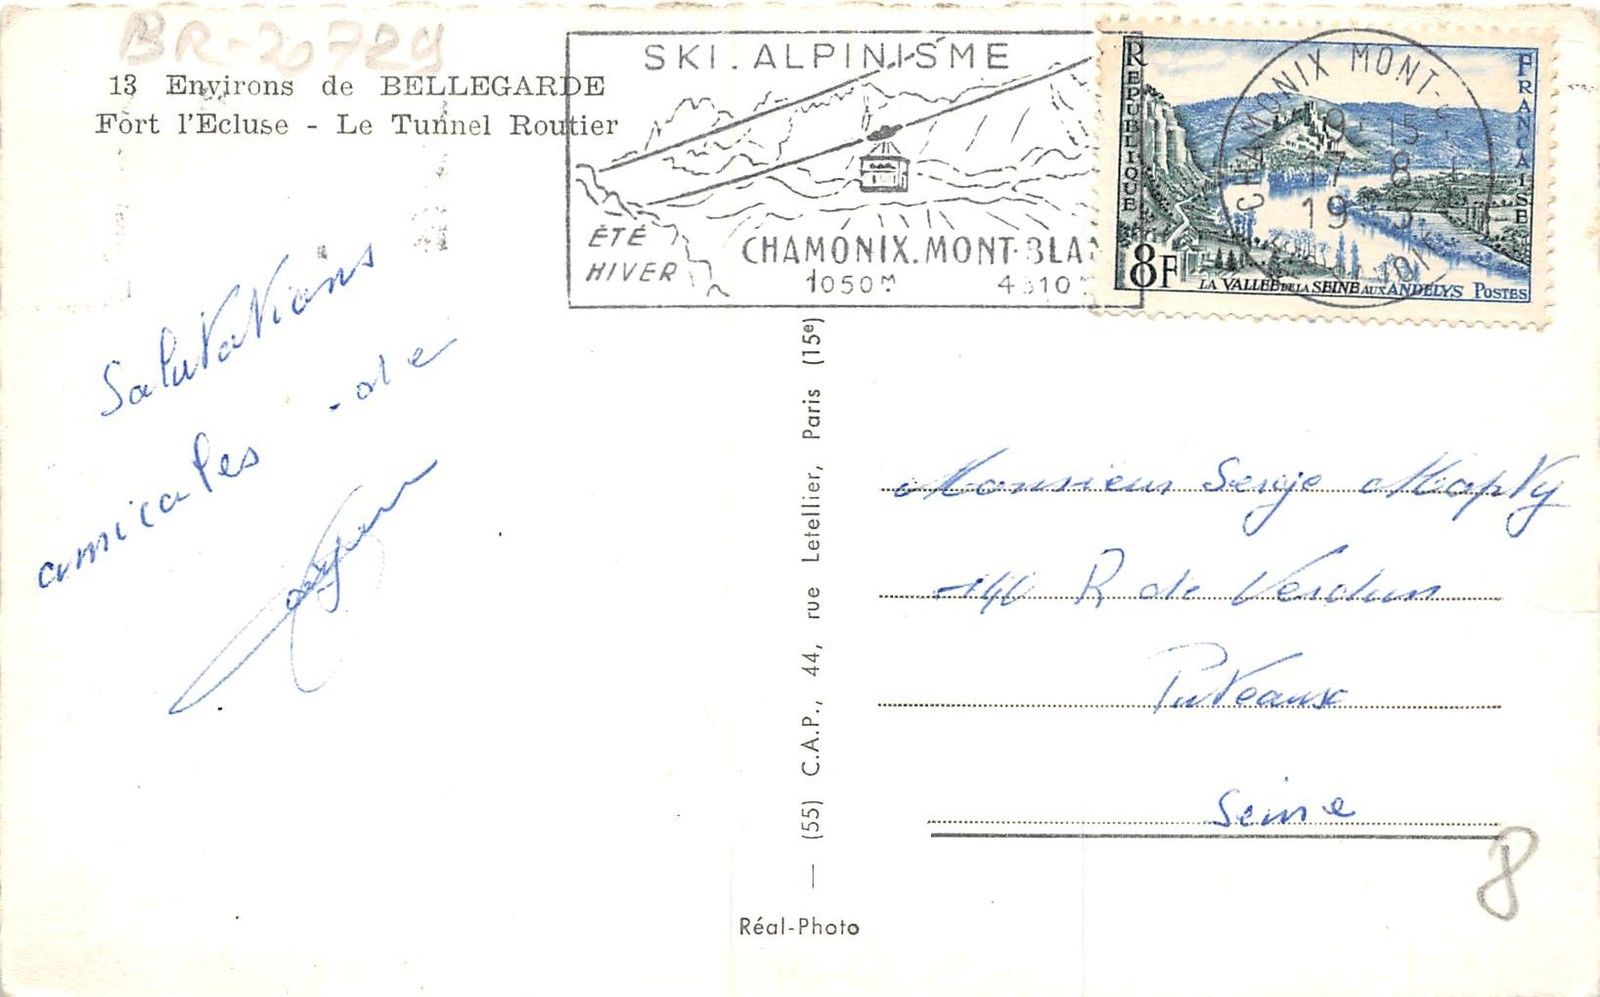 BR-20729
13 Environs de BELLEGARDE
Fort l'Ecluse - Le Tunnel Routier
SKI. ALPINISME
ÉTÉ
HIVER
CHAMONIX. MONT-BLA
1050m
CHAMONIX MONT-
19 15
17 8
19
RÉPUBLIQUE
FRANÇAISE
8F
LA VALLÉE DE LA SEINE AUX ANDELYS POSTES
Salutations
amicales de
(55) C.A.P., 44, rue Letellier, Paris (15e)
Réal-Photo
Monsieur Serge
140 R de Verdun
Puteaux
Seine
8